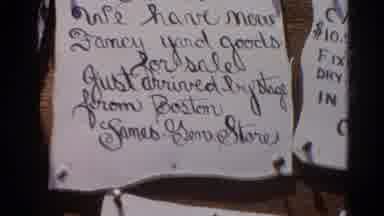 We have now
Fancy yard goods
for sale
Just arrived by stage
from Boston
James Gen. Store
$10.
FIX
DRY
IN